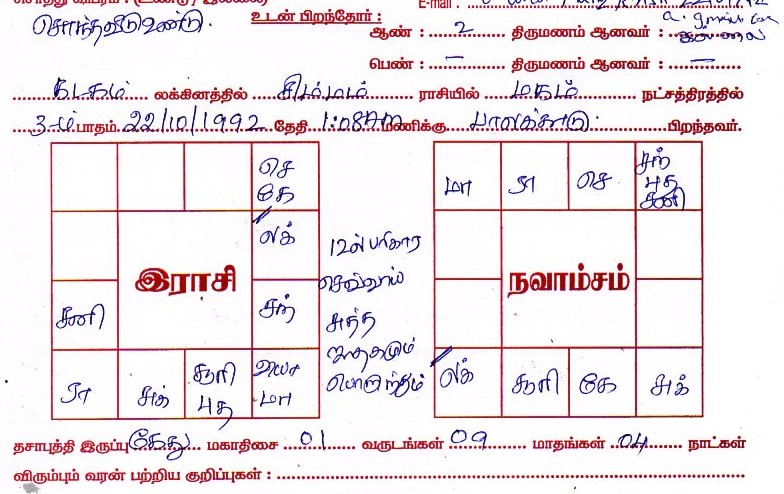 E-mail :
சொந்தவீடு உண்டு.
உடன் பிறந்தோர் :
ஆண் : 2 திருமணம் ஆனவர் : இல்லை
பெண் : – திருமணம் ஆனவர் : –
கடகம் லக்கினத்தில் சிம்மம் ராசியில் மகம் நட்சத்திரத்தில்
3-ம் பாதம் 22/10/1992 தேதி 1:08AM மணிக்கு பாலக்காடு பிறந்தவர்.
செ
கே
லக்
இராசி
சனி
சந்
ரா
சுக்
சூரி
புத
வியா
மா
12ல் பரிகார
செவ்வாய்
சுத்த
ஜாதகமும்
பொருந்தும்
மா
ரா
செ
சந்
புத
சனி
நவாம்சம்
லக்
சூரி
கே
சுக்
தசாபுத்தி இருப்பு கேது மகாதிசை 01 வருடங்கள் 09 மாதங்கள் 04 நாட்கள்
விரும்பும் வரன் பற்றிய குறிப்புகள் :